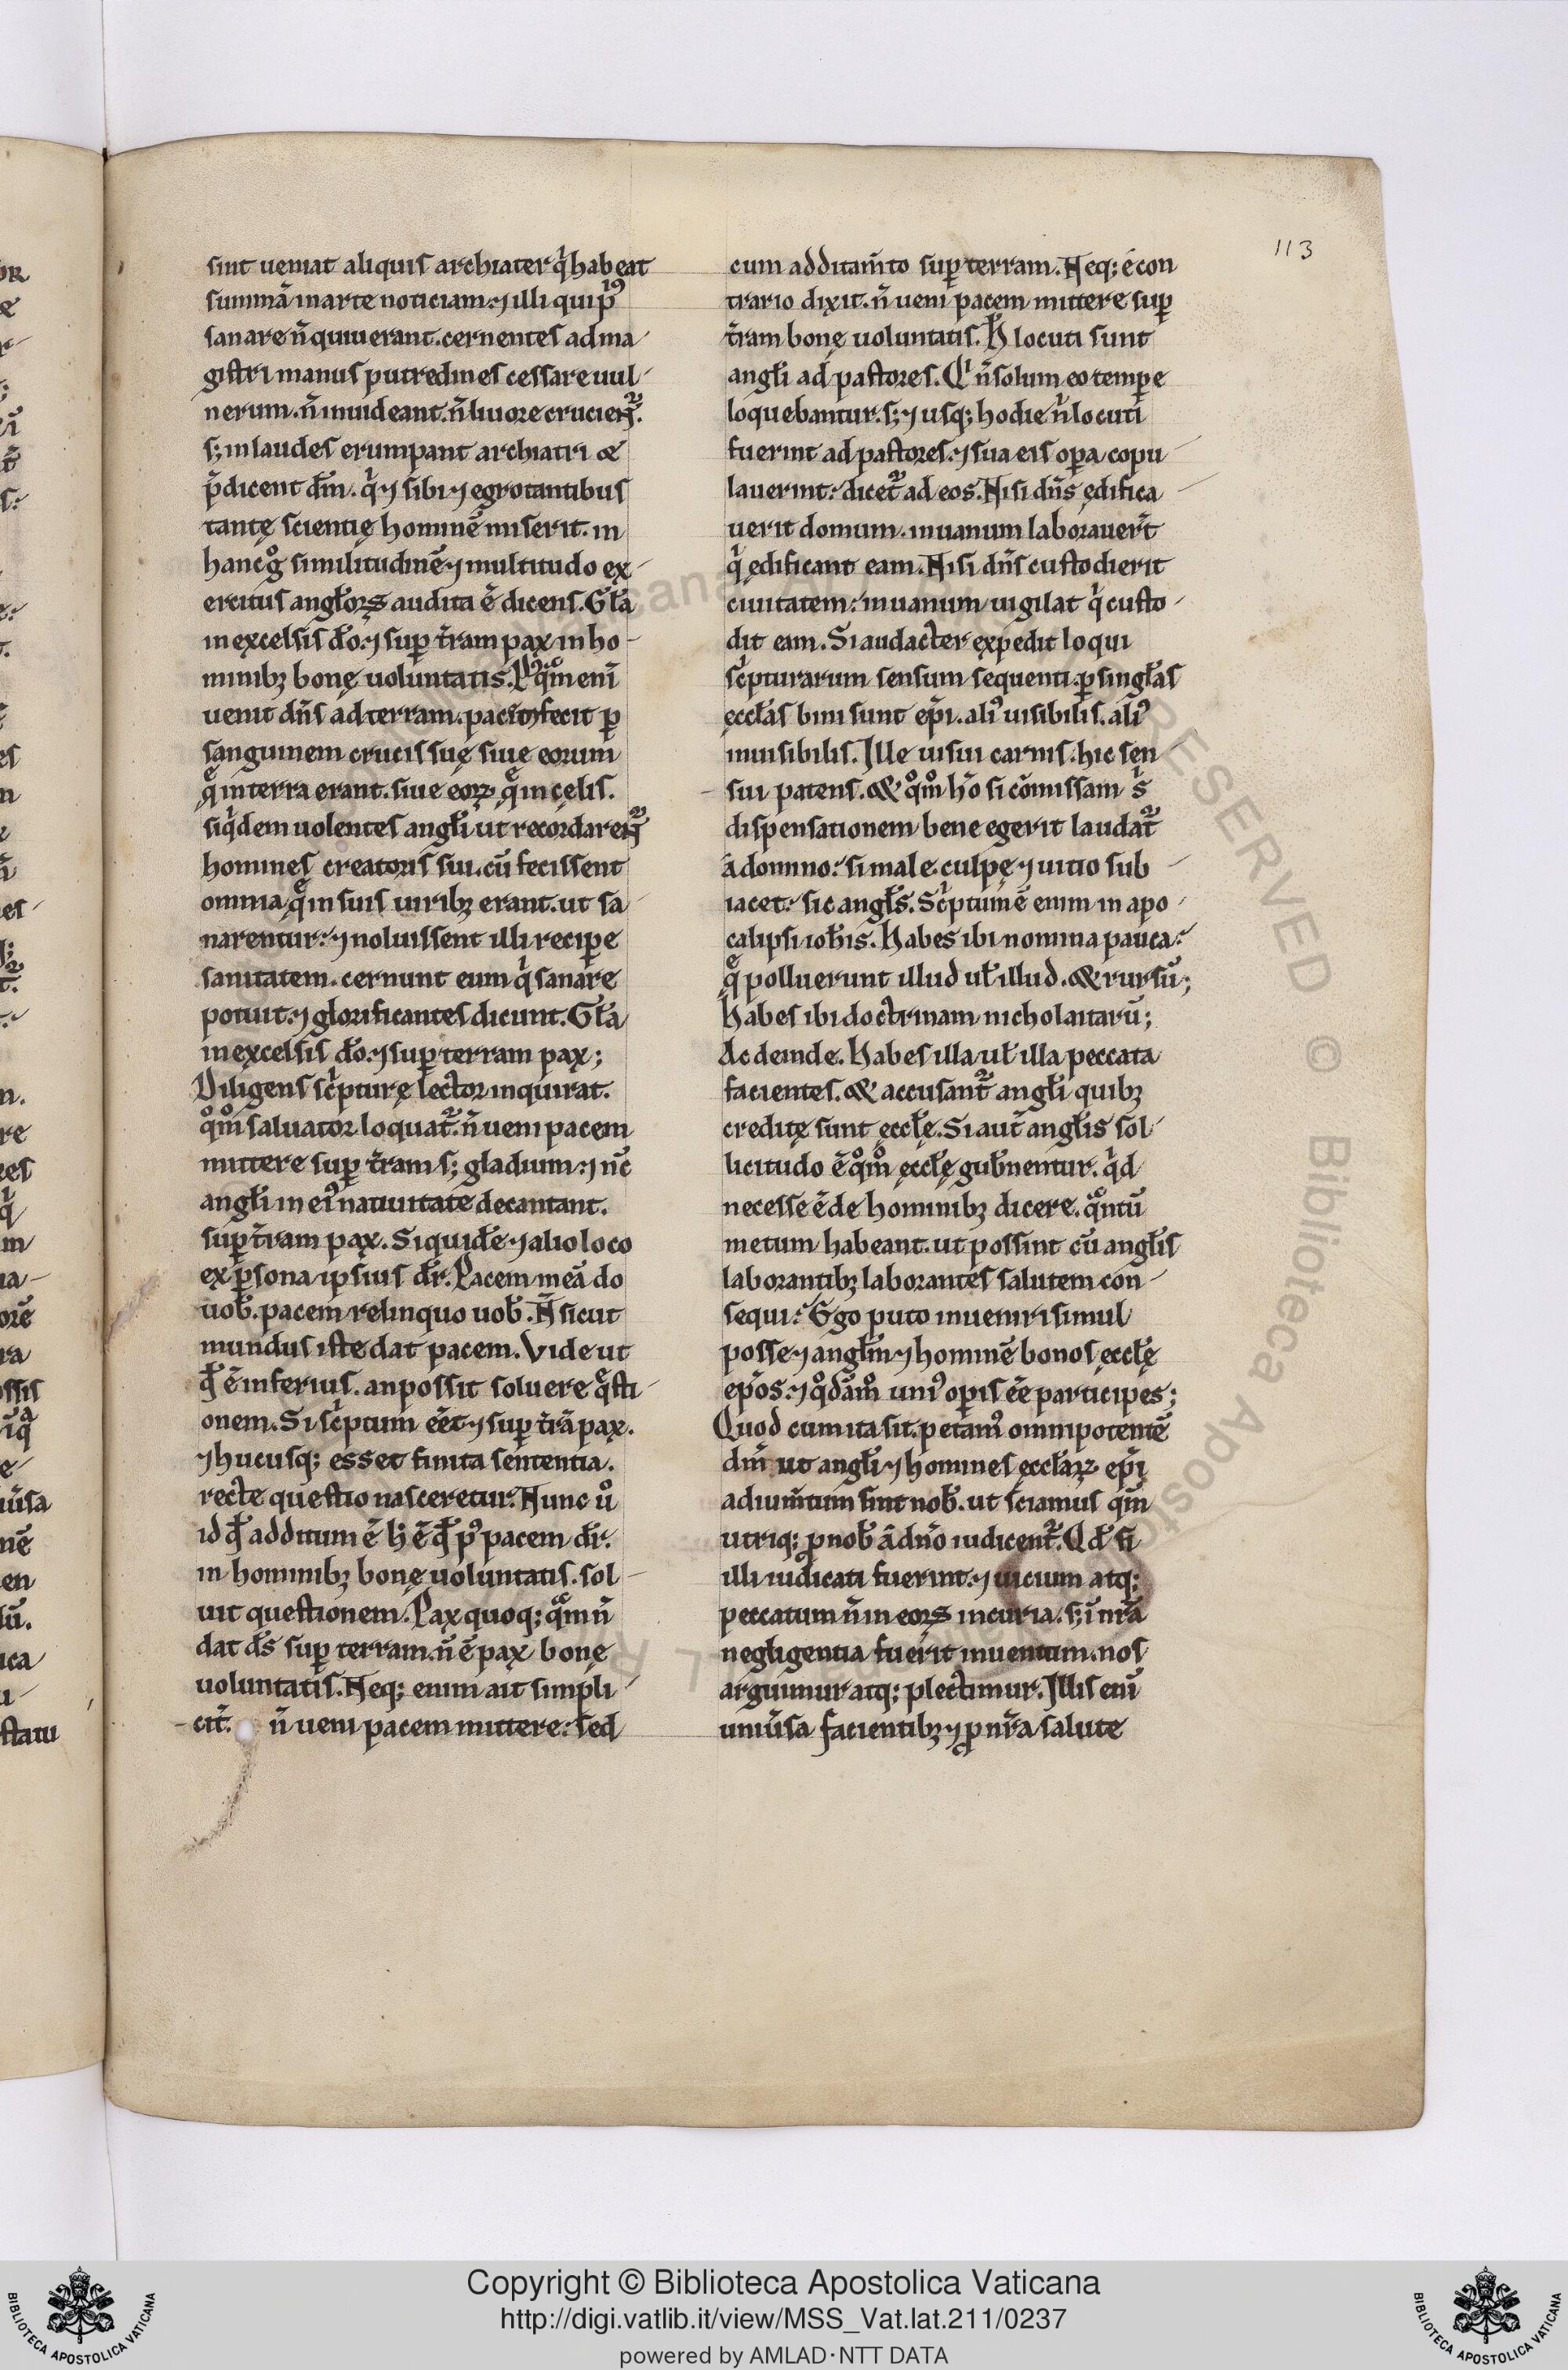 113
sint ueniat aliquis archiater q̇ habeat
summā in arte noticiam: ⁊ illi qui pi᷒
sanare n̄ quiuerant. cernentes ad ma-
gistri manus putredines cessare uul-
nerum. n̄ inuideant. n̄ liuore crucient᷑.
s; in laudes erumpant archiatri &
p̄dicent dm̄. q̇ ⁊ sibi ⁊ egrotantibus
tantę scientię hominē miserit. in
hanc gͦ similitudinē ⁊ multitudo ex-
ercitus angl̄oꝝ audita ē dicens. Gl̄a
in excelsis do̅: ⁊ sup̲ t̄ram pax in ho-
minibꝫ bonę uoluntatis. Pꝰqͣm eni̅
uenit dn̄s ad terram. pacificauit ꝑ
sanguinem crucis suę siue eorum
quę in terra erant. siue eoꝝ quę in cęlis.
siq̇dem uolentes angl̄i ut recordarent᷑
homines creatoris sui. cū fecissent
omnia quę in suis uiribꝫ erant. ut sa-
narentur: ⁊ noluissent illi recipe̲
sanitatem. cernunt eum q̇ sanare
potuit: ⁊ glorificantes dicunt. Gl̄a
in excelsis do̅: ⁊ sup̲ terram pax;
Diligens sc̍pturę lector inquirat.
qͦmͦ saluator loquat᷑. n̄ ueni pacem
mittere sup̲ t̄ram s; gladium: ⁊ nc̄
angl̄i in ei᷒ natiuitate decantant.
sup̲ t̄ram pax. Siquidē ⁊ alio loco
ex ꝑsona ipsius dr̄. Pacem meā do
uob̄. pacem relinquo uob̄. N̄ sicut
mundus iste dat pacem. Vide ut
qd̄ ē inferius. an possit soluere qͣsti-
onem. Si sc̍ptum eēt ⁊ sup̲ t̄rā pax.
⁊ hucusq; esset finita sententia.
recte questio nasceretur. Nunc uͦ
id qd̄ additum ē hͦ ē qd̄ p᷒ pacem dr̄.
in hominibꝫ bonę uoluntatis. sol-
uit questionem. Pax quoq; qͣm n̄
dat ds̄ sup̲ terram. n̄ ē pax bonę
uoluntatis. Neq; enim ait simpli-
cit̄. n̄ ueni pacem mittere: sed
cum additam̄to sup̲ terram. Neq; ė con
trario dixit. n̄ ueni pacem mittere sup̲
t̄ram bonę uoluntatis. H̄ locuti sunt
angl̄i ad pastores. Q̇ n̄ solum eo tempe̲
loquebantur. s; ⁊ usq; hodie n̍ locuti
fuerint ad pastores. ⁊ sua eis opa̲ copu-
lauerint: dicet᷑ ad eos. Nisi dn̄s ędifica-
uerit domum. in uanum laborauer̄t
q̇ ędificant eam. Nisi dn̄s custodierit
ciuitatem: in uanum uigilat q̇ custo-
dit eam. Si audact̄er expedit loqui
sc̍pturarum sensum sequenti. ꝑ singl̄as
ęccl̄as bini sunt ep̄i. ali᷒ uisibilis. ali᷒
inuisibilis. Ille uisui carnis. hic sen-
sui patens. & qͦmͦ hō si cōmissam s̍
dispensationem bene egerit laudat᷑
a domino: si male. culpę ⁊ uitio sub-
iacet: sic angl̄s. Sc̍ptum ē enim in apo-
calipsi ioh̄is. Habes ibi nomina pauca:
quę polluerunt illud ul̄ illud. & rursū;
Habes ibi doctrinam nicholaitarū;
Ac deinde. Habes illa ul̄ illa peccata
facientes. & accusant᷑ angl̄i quibꝫ
creditę sunt ęccl̄ę. Si aut̄ angl̄is sol-
licitudo ē qͦmͦ ęccl̄ę gub̄nentur. q̇d
necesse ē de hominibꝫ dicere. qͣntū
metum habeant. ut possint cū angl̄is
laborantibꝫ laborantes salutem con-
sequi: Ego puto inueniri simul
posse ⁊ angl̄m ⁊ hominē bonos ęccl̄ę
ep̄os. ⁊ qͦdāmͦ uni᷒ opis̲ eē participes;
Quod cum ita sit. petam᷒ omnipotentē
dm̄ ut angl̄i ⁊ homines ęccl̄aꝝ ep̄i
adium̄tum sint nob̄. ut sciamus qm̄
utriq; ꝓ nob̄ ā dn̄o iudicent᷑. Qd̄ si
illi iudicati fuerint: ⁊ uicium atq;
peccatum n̄ in eoꝝ incuria. s; i̅ nr̄a
negligentia fuerit inuentum. nos
arguimur atq; plectimur. Illis eni̅
uniu̅sa facientibꝫ ⁊ ꝓ nr̄a salute
Copyright © Biblioteca Apostolica Vaticana
http://digi.vatlib.it/view/MSS_Vat.lat.211/0237
powered by AMLAD·NTT DATA